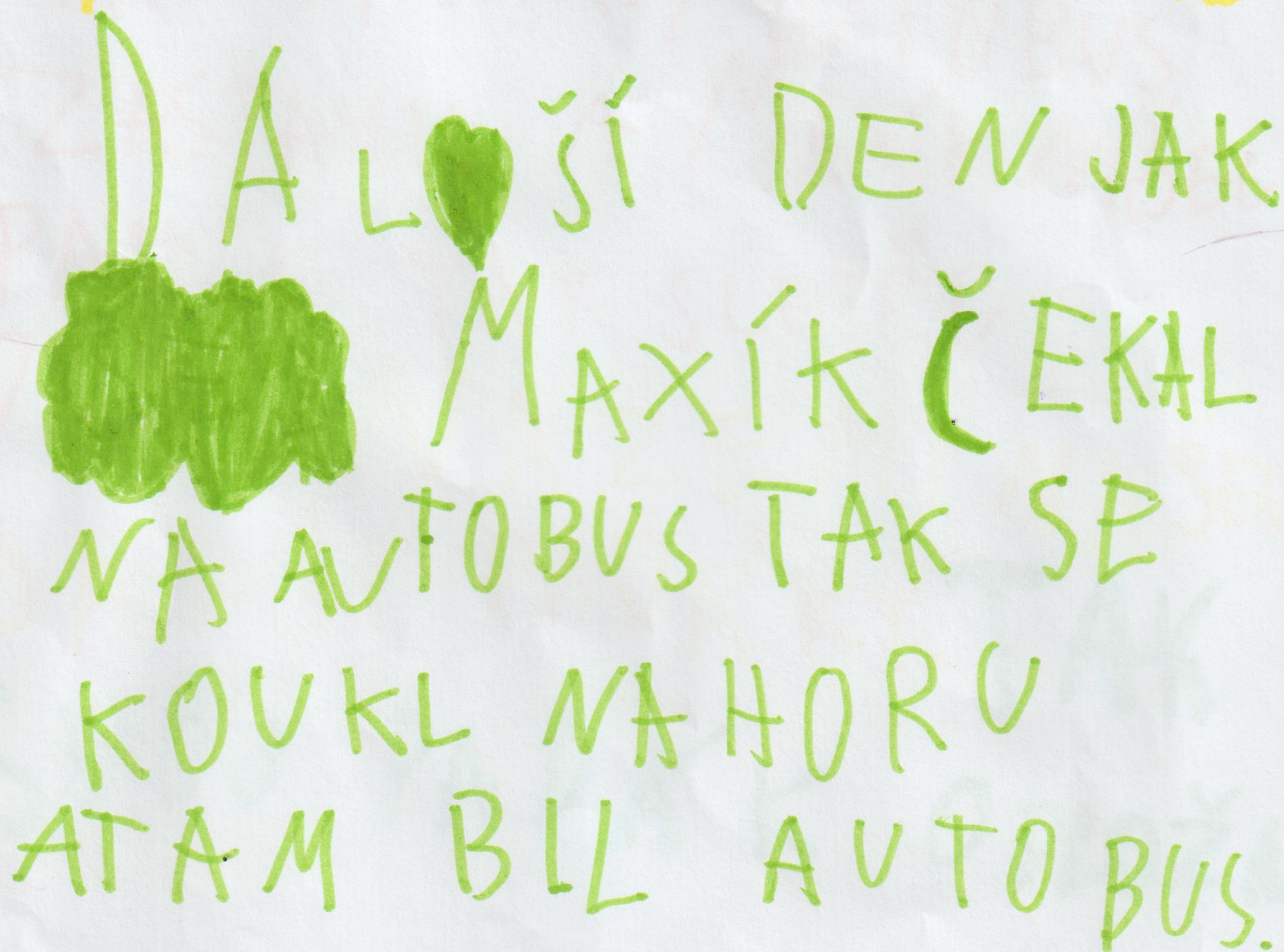 DALŠÍ DEN JAK
MAXÍK ČEKAL
NA AUTOBUS TAK SE
KOUKL NAHORU
ATAM BIL AUTOBUS.